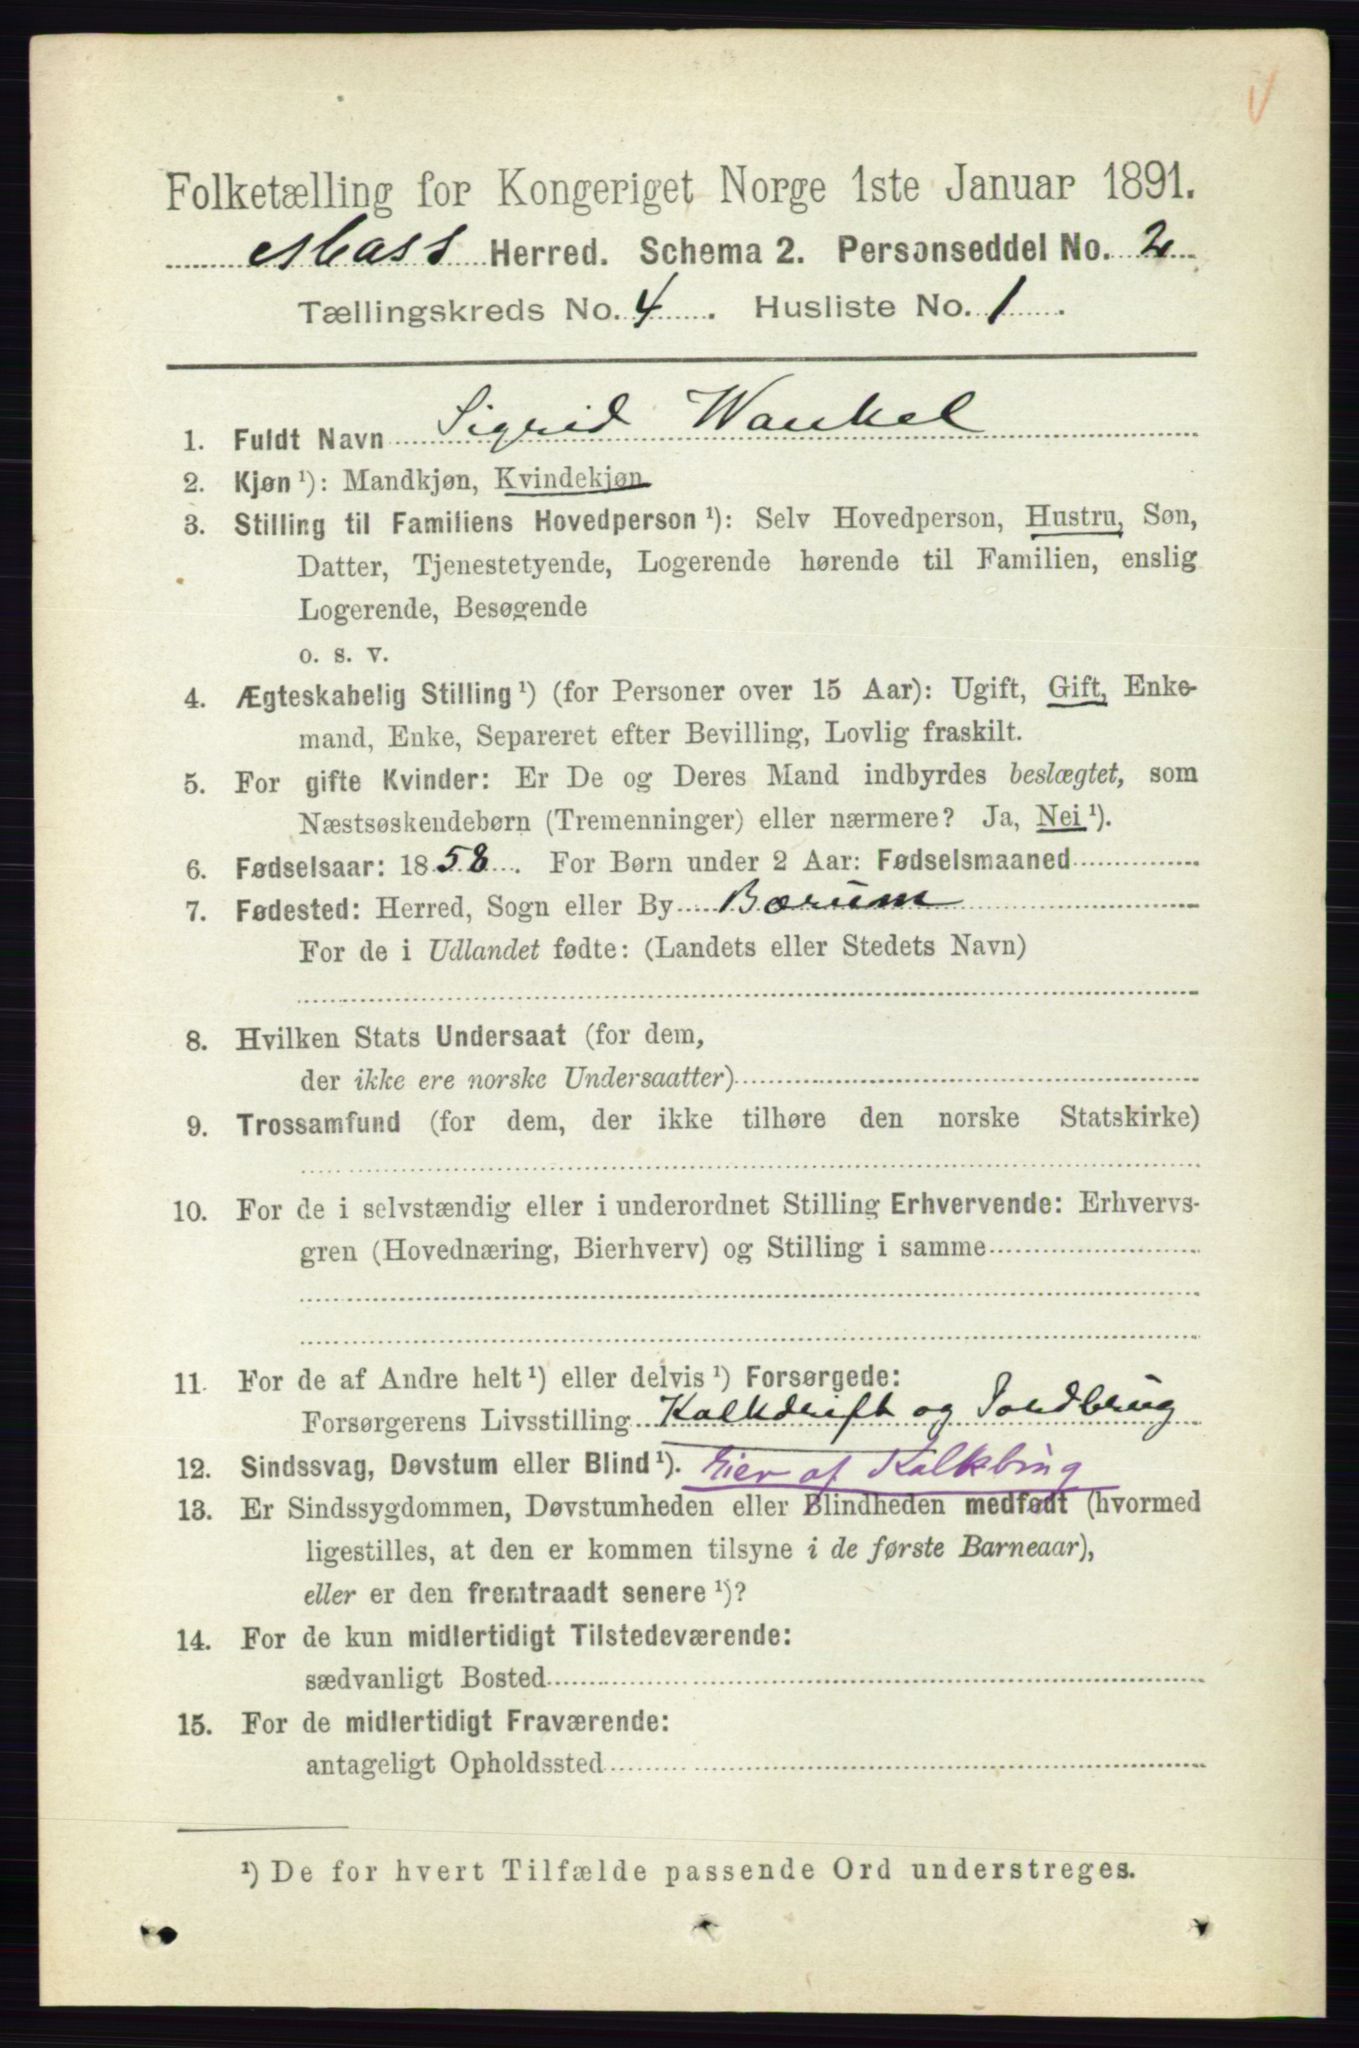 Folketælling for Kongeriget Norge 1ste Januar 1891.
Moss Herred. Schema 2. Personseddel No. 2
Tællingskreds No. 4. Husliste No. 1.
1. Fuldt Navn Sigrid Wankel
2. Kjøn ¹): Mandkjøn, Kvindekjøn
3. Stilling til Familiens Hovedperson ¹): Selv Hovedperson, Hustru, Søn,
Datter, Tjenestetyende, Logerende hørende til Familien, enslig
Logerende, Besøgende
o. s. v.
4. Ægteskabelig Stilling ¹) (for Personer over 15 Aar): Ugift, Gift, Enke-
mand, Enke, Separeret efter Bevilling, Lovlig fraskilt.
5. For gifte Kvinder: Er De og Deres Mand indbyrdes beslægtet, som
Næstsøskendebørn (Tremenninger) eller nærmere? Ja, Nei ¹).
6. Fødselsaar: 1858. For Børn under 2 Aar: Fødselsmaaned
7. Fødested: Herred, Sogn eller By Bærum
For de i Udlandet fødte: (Landets eller Stedets Navn)
8. Hvilken Stats Undersaat (for dem,
der ikke ere norske Undersaatter)
9. Trossamfund (for dem, der ikke tilhøre den norske Statskirke)
10. For de i selvstændig eller i underordnet Stilling Erhvervende: Erhvervs-
gren (Hovednæring, Bierhverv) og Stilling i samme
11. For de af Andre helt ¹) eller delvis ¹) Forsørgede:
Forsørgerens Livsstilling Kalkdrift og Jordbrug
12. Sindssvag, Døvstum eller Blind ¹). Eier af Kalkbrug
13. Er Sindssygdommen, Døvstumheden eller Blindheden medfødt (hvormed
ligestilles, at den er kommen tilsyne i de første Barneaar),
eller er den fremtraadt senere ¹)?
14. For de kun midlertidigt Tilstedeværende:
sædvanligt Bosted
15. For de midlertidigt Fraværende:
antageligt Opholdssted
¹) De for hvert Tilfælde passende Ord understreges.